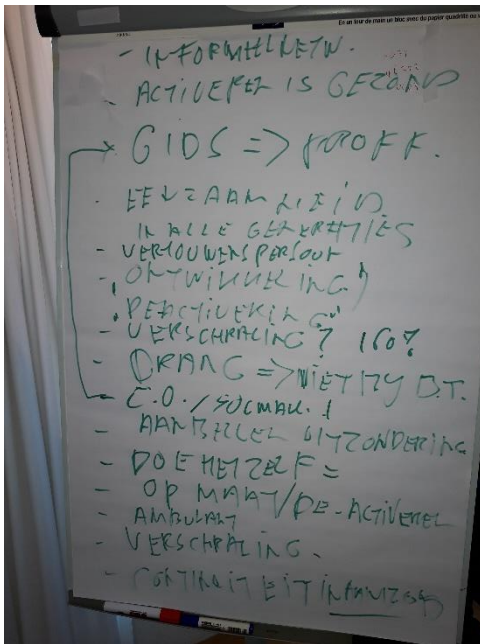 En un tour de main un bloc avec du papier quadrillé ou
- INFORMEL NETW.
- ACTIVEREN IS GEZOND
GIDS => PROFF.
- EENZAAMHEID
IN ALLE GENERATIES
- VERTROUWENSPERSOON
- "ONTWIKKELING"
"REACTIVERING"
- VERSCHRALING?
- DRANG => NIET BIJ D.T.
- C.O. /
- AANBELLEN UITZONDERING
- DOE HET ZELF =
- OP MAAT/DE-ACTIVEREN
- AMBULANT
- VERSCHRALING.
- CONTINUITEIT IN